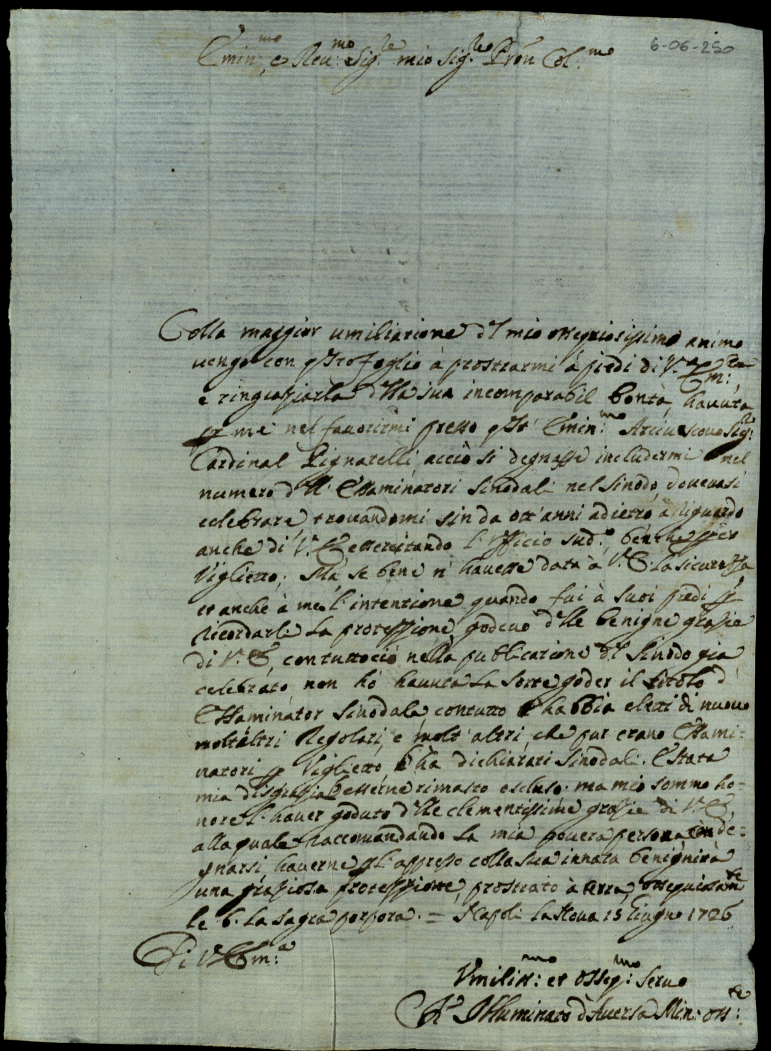 6-06-250
Emin:mo e Reu:mo Sig:re mio Sig:re Pron Col:mo
Colla maggior umiliazione d'l mio ossequiosissimo animo
vengo con q'sto foglio à prostrarmi à piedi di V:a Em:za
e ringraziarla d'lla sua incomparabil bontà havuta
per me nel favorirmi presso q'sto Emin:mo Arcivescovo Sig:r
Cardinal Pignatelli, acciò si degnasse includermi nel
numero d'll' Essaminatori Sinodali nel Sinodo dovevasi
celebrare, trovandomi sin da ott'anni adietro, à riguardo
anche di V:E essercitando l'ufficio sud:o benche per
Viglietto; Ma se bene n' havesse data à V:E la sicurezza
et anche à me l'intenzione quando fui à suoi piedi per
ricordarli la protezzione godevo d'lle benigne grazie
di V:E, contuttociò nella publicazione d'l Sinodo già
celebrato non hò havuta la sorte goder il titolo d'
Essaminator Sinodale contutto habbia eletti di nuovo
molt'altri Regolari, e molt'altri che pur erano Essami-
natori per Viglietto hà dichiarati Sinodali. È stata
mia disgrazia l'esserne rimasto escluso: ma mio sommo ho-
nore l'haver goduto d'lle clementissime grazie di V:E,
alla quale raccomandando la mia povera persona de-
gnarsi haverne p'l'appresso colla sua innata benignità
una graziosa protezzione, prostrato à terra ossequiosam:te
le b. la sagra porpora. = Napoli la Nova 15 Giugno 1726
Di V:Em:a
Vmiliss:mo et osseq:mo Servo
Fr' Illuminato d'Aversa Min: oss:te